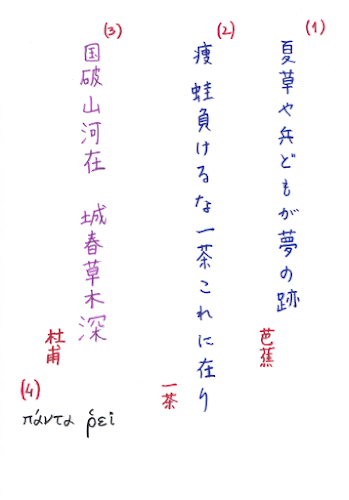 (1)
夏草や兵どもが夢の跡
芭蕉
(2)
痩 蛙負けるな一茶これに在り
一茶
(3)
国破山河在 城春草木深
杜甫
(4)
πάντα ῥεῖ